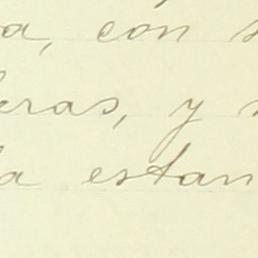 a, con
eras, y
a estan